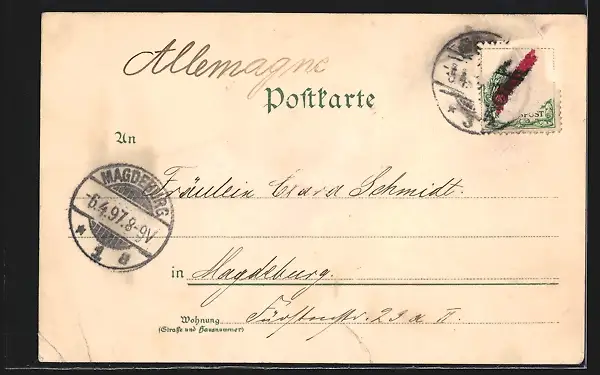 Allemagne
Postkarte
An
Fräulein Clara Schmidt.
MAGDEBURG
-6.4.97.8-9V
* 1 a
in Magdeburg.
Wohnung
(Straße und Hausnummer)
Fürstenstr. 23 a II.
POST